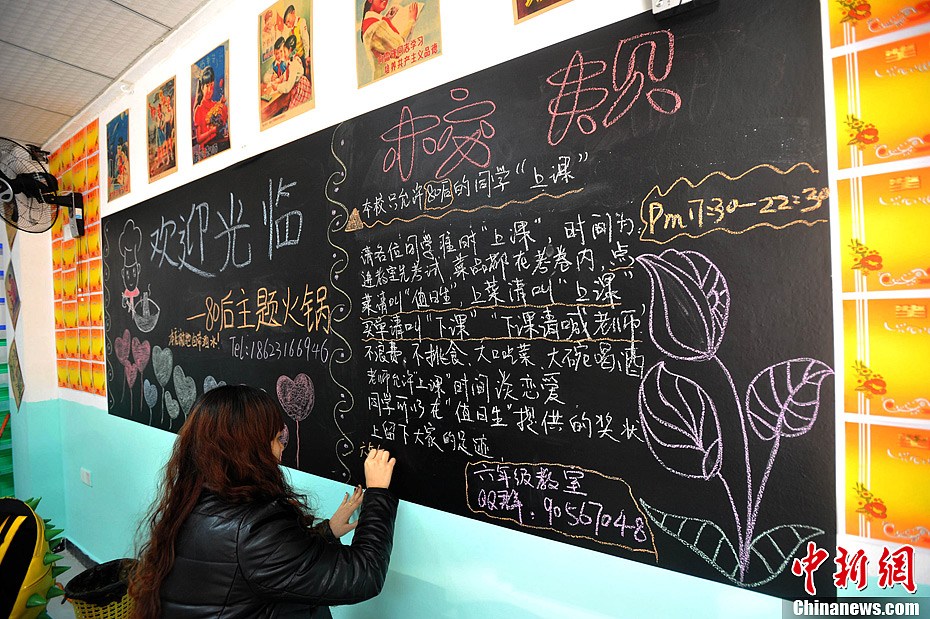 培养共产主义品德
欢迎光临
—80后主题火锅
Tel:18623166946
校规
本校只允许80后的同学“上课”
请各位同学准时“上课”，时间为:
Pm 17:30-22:30
进教室先考试 菜品都在考卷内，点
菜请叫“值日生”，上菜请叫“上课”
买单请叫“下课” “下课请喊老师”
不浪费、不挑食、大口吃菜、大碗喝酒
老师允许“上课”时间谈恋爱
同学可以在“值日生”提供的奖状
上留下大家的足迹
六年级教室
QQ群:90567048
中新网
Chinanews.com